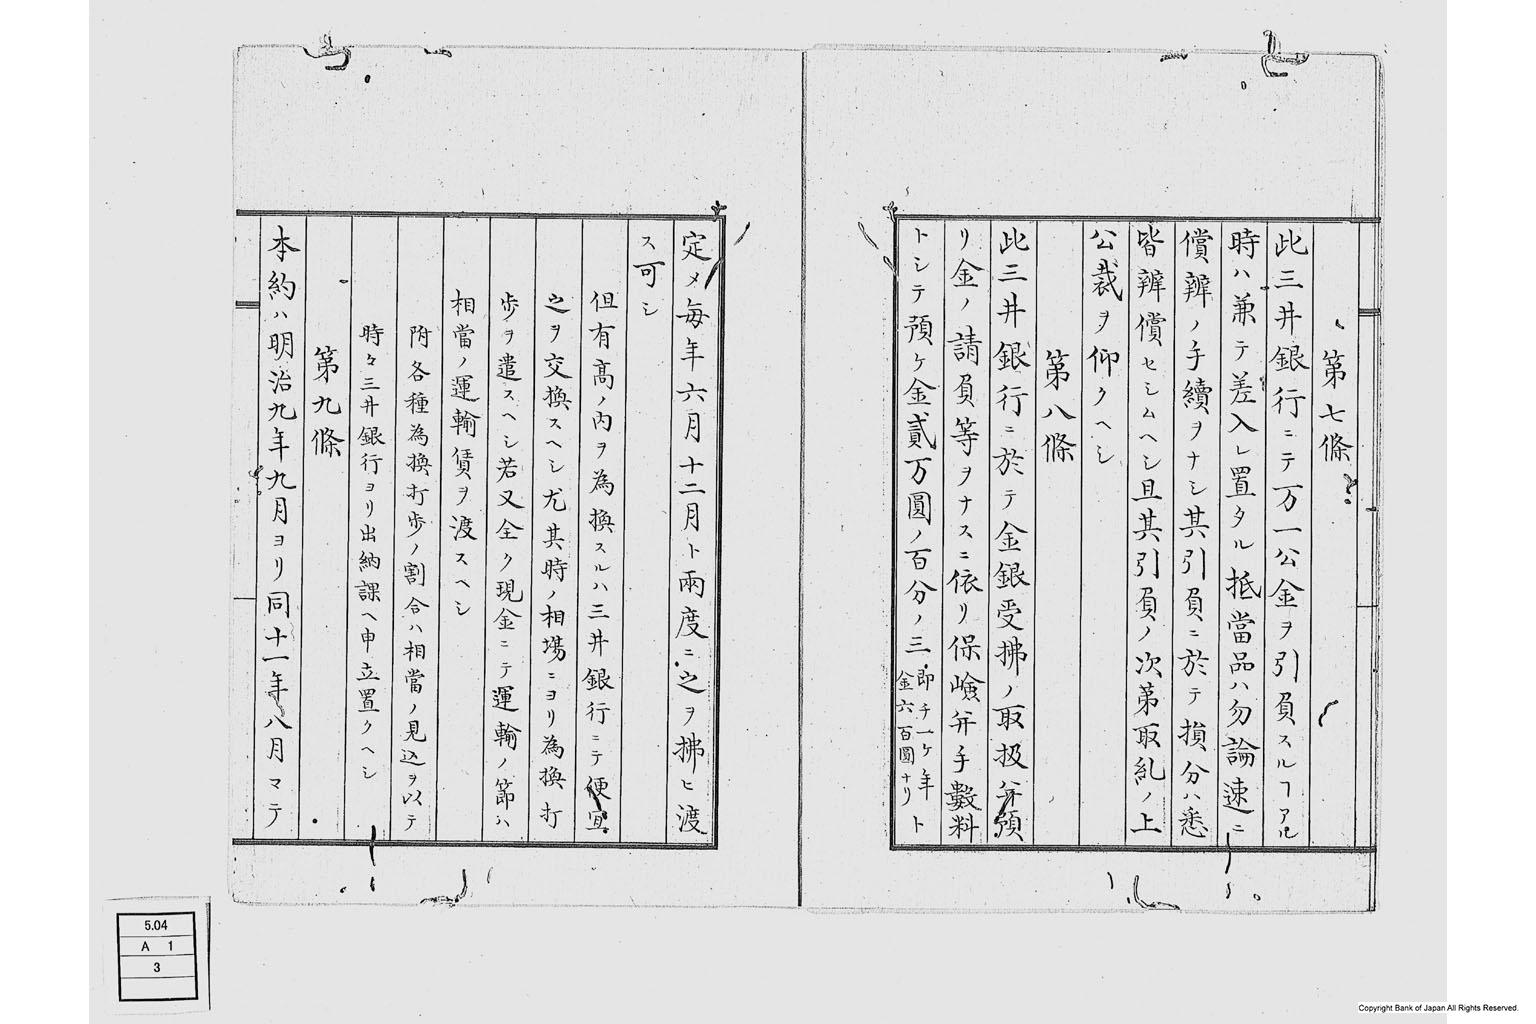 第七條
此三井銀行ニテ万一公金ヲ引負スルヿアル
時ハ兼テ差入レ置タル抵當品ハ勿論速ニ
償辨ノ手續ヲナシ其引負ニ於テ損分ハ悉
皆辨償セシムヘシ且其引負ノ次第取糺ノ上
公裁ヲ仰クヘシ
第八條
此三井銀行ニ於テ金銀受拂ノ取扱并預
リ金ノ請負等ヲナスニ依リ保険并手數料
トシテ預ケ金貳万圓ノ百分ノ三即チ一ケ年金六百圓ナリト
定メ毎年六月十二月ト兩度ニ之ヲ拂ヒ渡
ス可シ
但有高ノ内ヲ為換スルハ三井銀行ニテ便宜
之ヲ交換スヘシ尤其時ノ相場ニヨリ為換打
歩ヲ遣スヘシ若又全ク現金ニテ運輸ノ節ハ
相當ノ運輸賃ヲ渡スヘシ
附各種為換打歩ノ割合ハ相當ノ見込ヲ以テ
時々三井銀行ヨリ出納課ヘ申立置クヘシ
第九條
本約ハ明治九年九月ヨリ同十一年八月マテ
5.04
A 1
3
Copyright Bank of Japan All Rights Reserved.